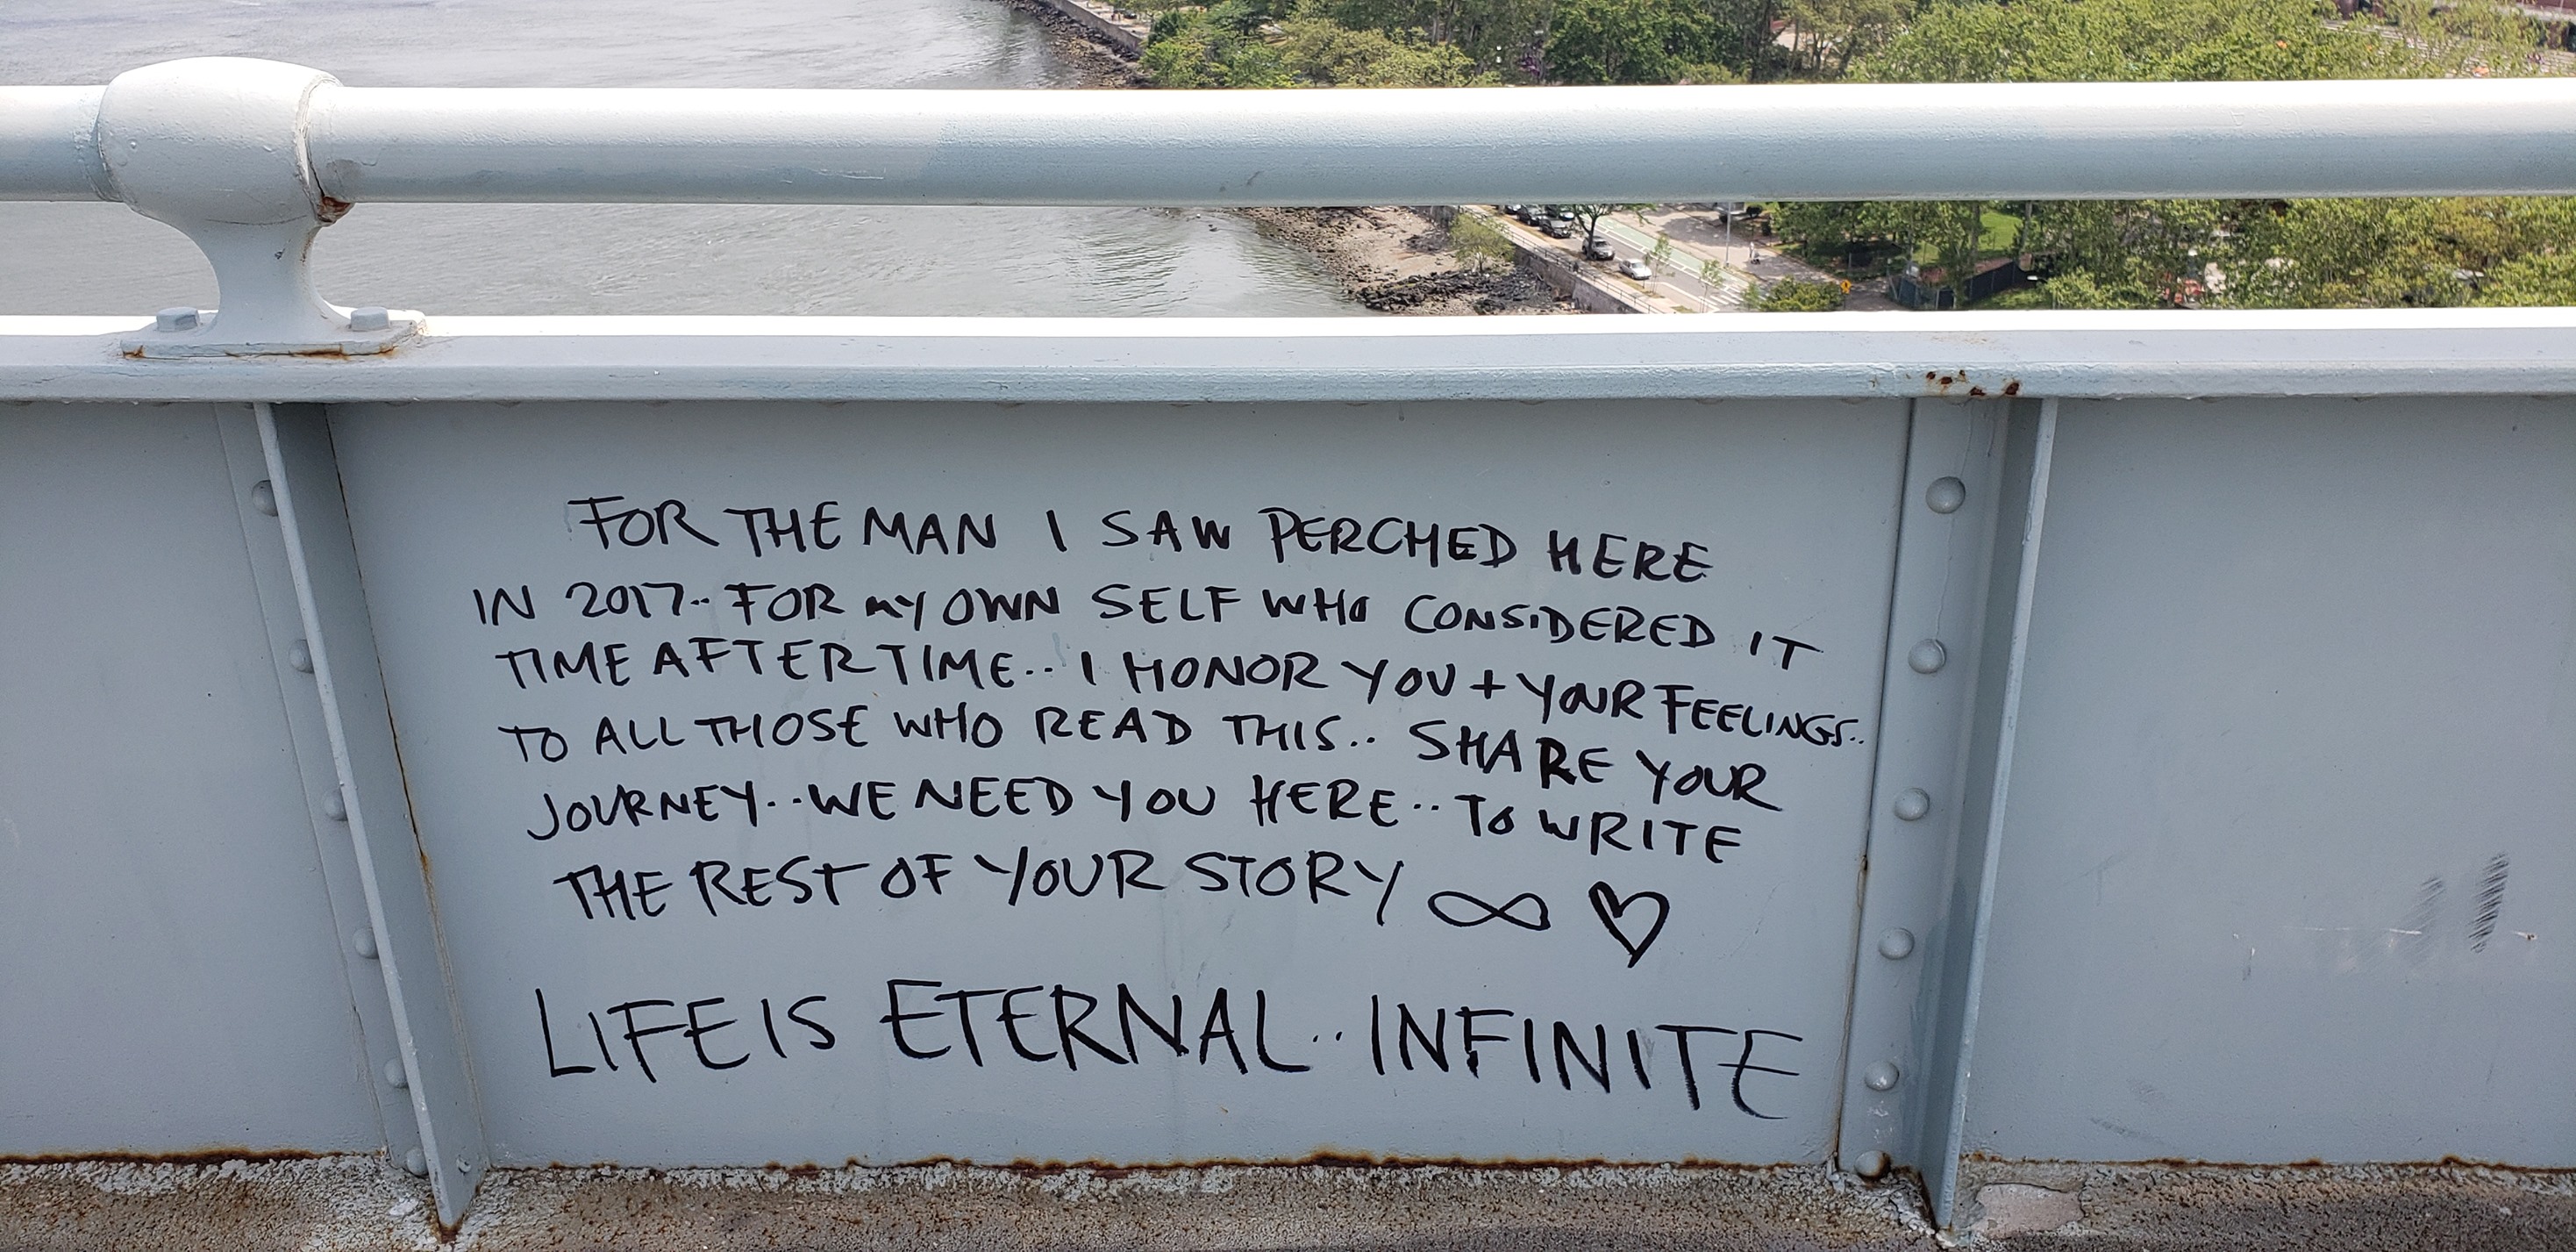 FOR THE MAN I SAW PERCHED HERE
IN 2017.. FOR MY OWN SELF WHO CONSIDERED IT
TIME AFTER TIME.. I HONOR YOU + YOUR FEELINGS..
TO ALL THOSE WHO READ THIS.. SHARE YOUR
JOURNEY.. WE NEED YOU HERE.. TO WRITE
THE REST OF YOUR STORY ∞ ♡
LIFE IS ETERNAL.. INFINITE